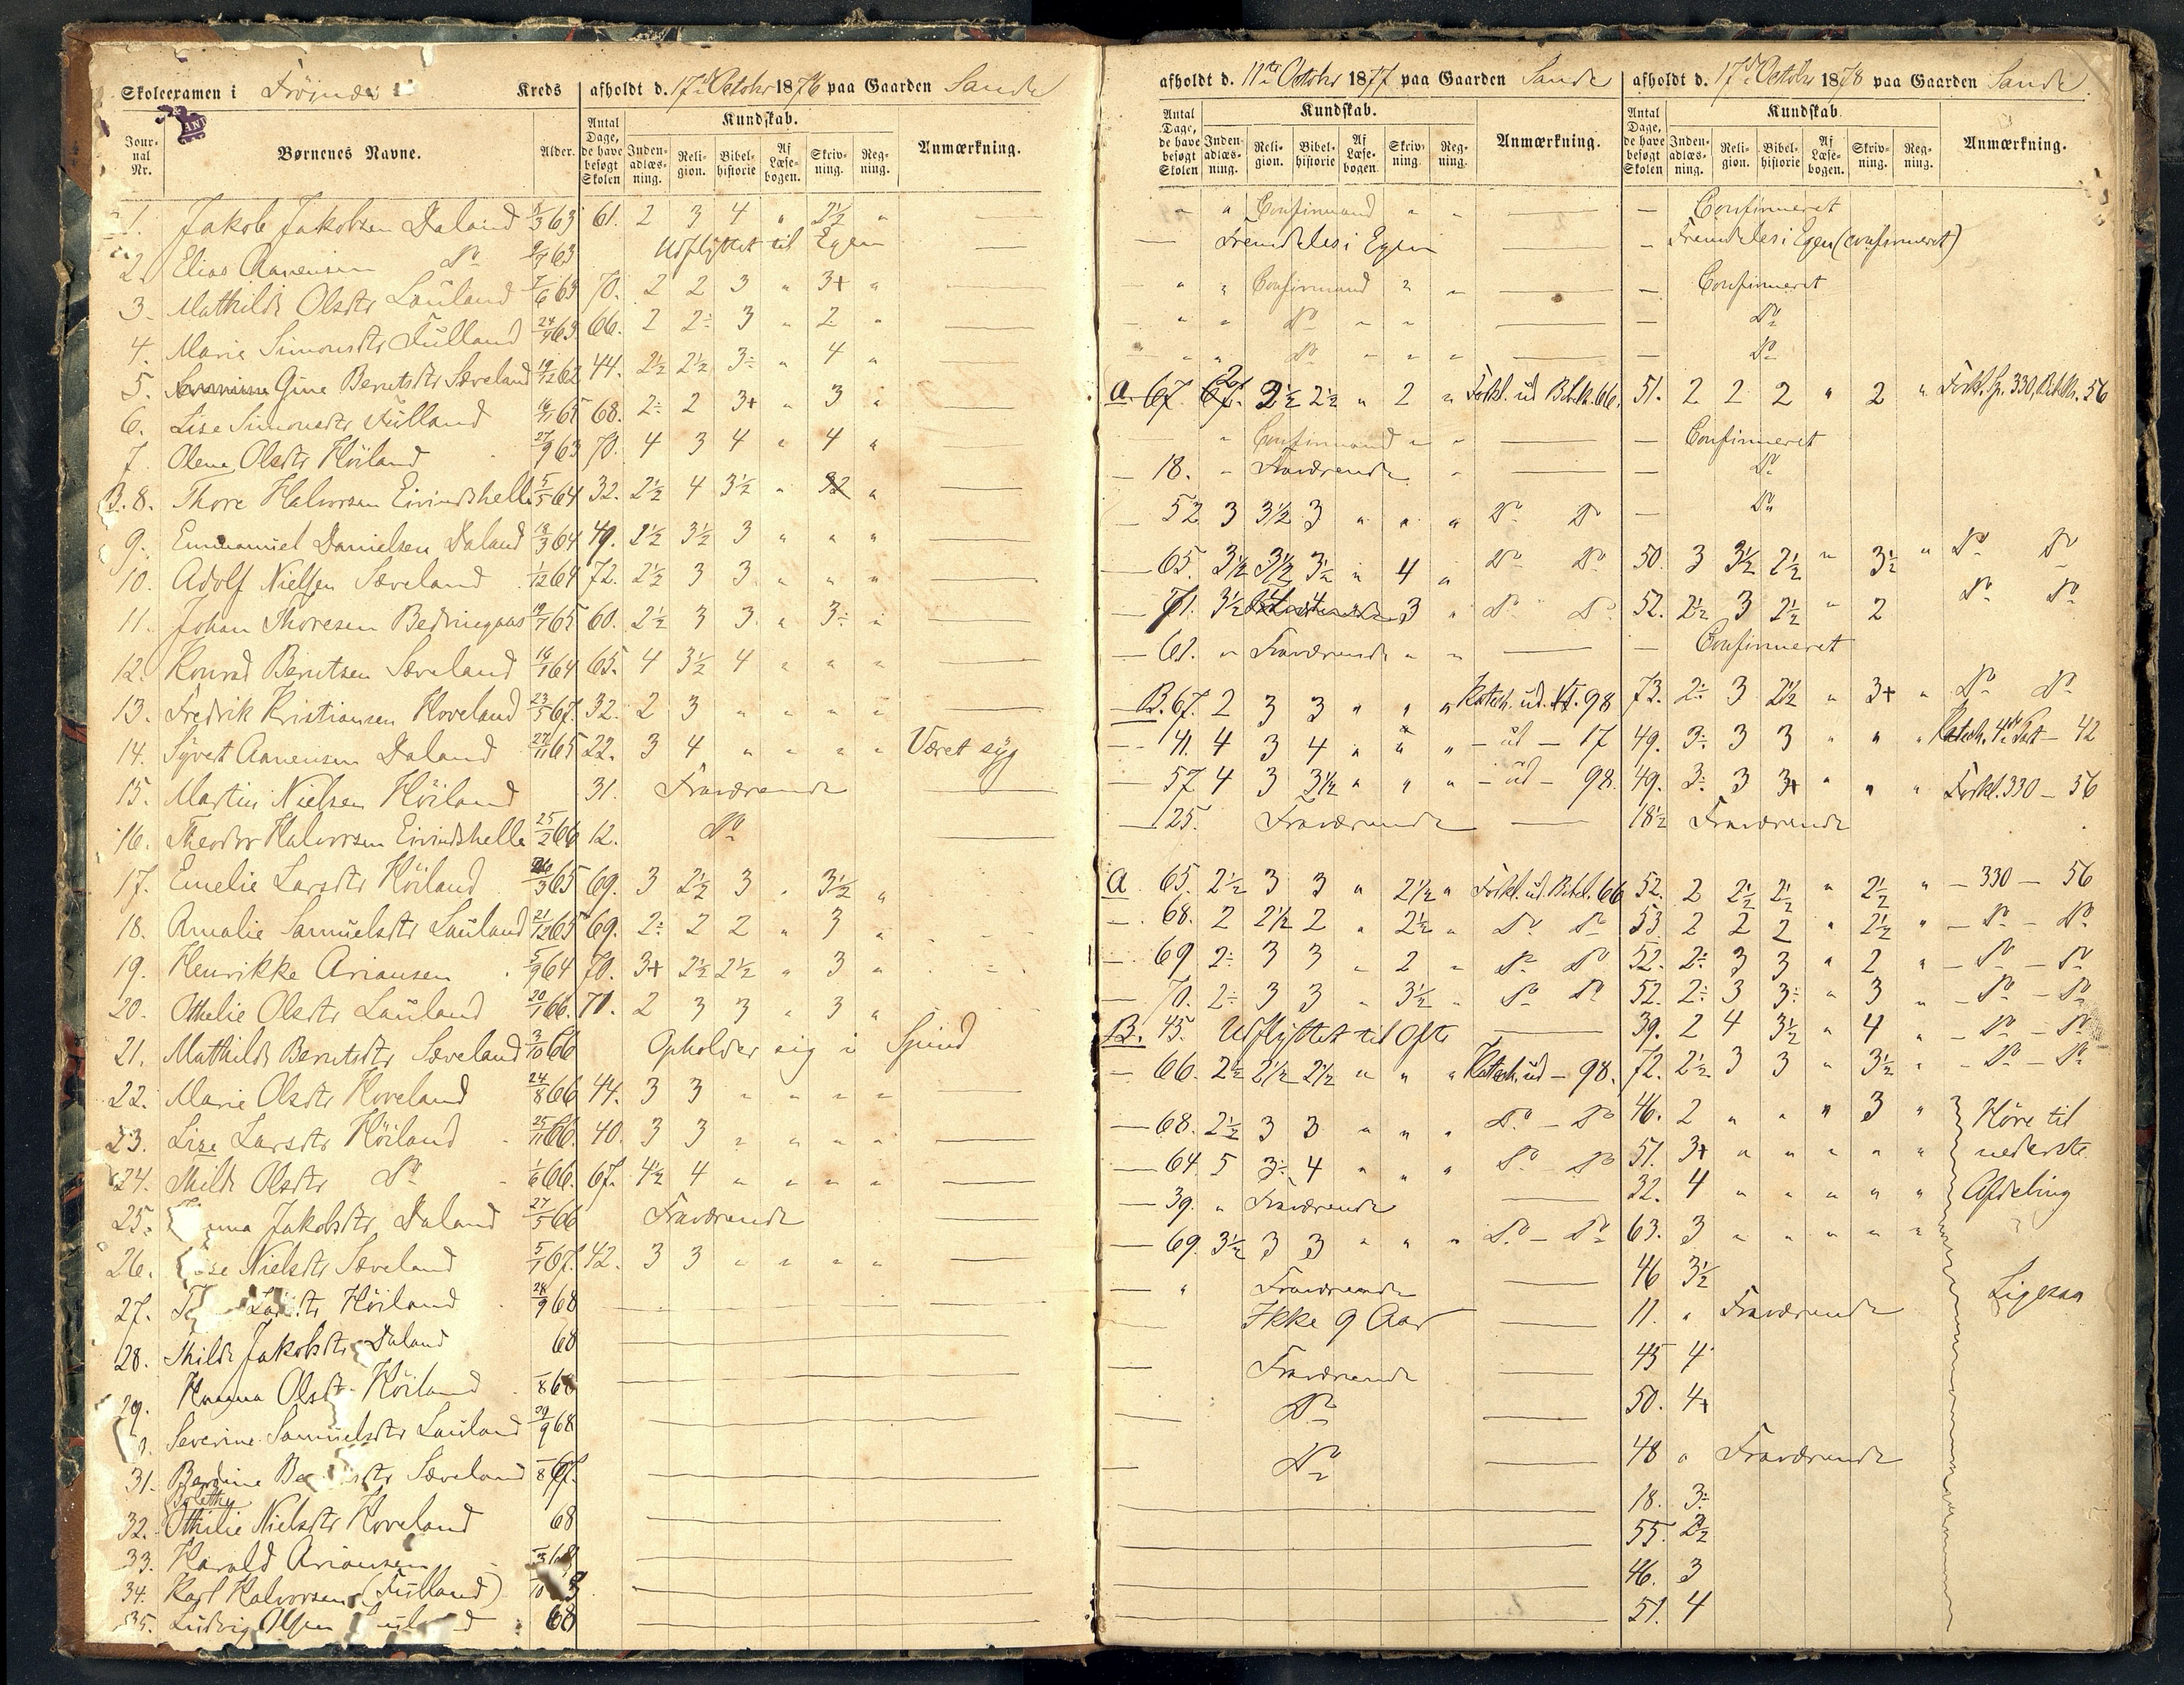 Skoleexamen i Kreds afholdt d. 17de October 1876 paa Gaarden Sande
Journal Nr. Børnenes Navne. Alder. Antal Dage, de have besøgt Skolen Kundskab. Indenadlæsning. Religion. Bibelhistorie Af Læsebogen. Skrivning. Regning. Anmærkning.
1. Jakob Jakobsen Daland 63 61. 2 3 4 " 2½ "
2. Elias Aanensen Do 63 Udflyttet til Egen
3. Mathilde Olsdtr Lauland 63 70. 2 2 3 " 3+ "
4. Marie Simonsdtr Fulland 63 66. 2 2÷ 3 " 2 "
5. Gine Berntsdtr Sæveland 19/12 62 44. 2½ 2½ 3÷ " 4 "
6. Lise Simonsdtr Fulland 65 68. 2÷ 2 3+ " 3 "
7. Olene Olsdtr Höiland 27/9 63 70. 4 3 4 " 4 "
B. 8. Thore Halvorsen Eivindshelle 5/5 64 32. 2½ 4 3½ " "
9. Emmanuel Danielsen Daland 64 49. 2½ 3½ 3 " " "
10. Adolf Nielsen Sæveland 1/12 64 72. 2½ 3 3 " " "
11. Johan Thoresen 65 60. 2½ 3 3 " 3÷ "
12. Konrad Berntsen Sæveland 64 65. 4 3½ 4 " " "
13. Fredrik Kristiansen Hoveland 23/5 67. 32. 2 3 " " " "
14. Syvert Aanensen Daland 27/11 65 22. 3 4 " " " " Været syg
15. Martin Nielsen Höiland 31. Fraværende
16. Theodor Halvorsen Eivindshelle 25/2 66 12. Do
17. Emelie Larsdtr Höiland 65 69. 3 2½ 3 " 3½ "
18. Amalie Samuelsdtr Lauland 21/12 65 69. 2÷ 2 2 " 3 "
19. Henrikke Ariansen 5/9 64 70. 3+ 2½ 2½ " 3 "
20. Othelie Olsdtr Lauland 20/1 66. 71. 2 3 3 " 3 "
21. Mathilde Berntsdtr Sæveland 3/10 66 Opholder sig i Spind
22. Marie Olsdtr Hoveland 24/8 66 44. 3 3 " " " "
23. Lise Larsdtr Höiland 25/11 66. 40. 3 3 " " " "
24. Thilde Olsdtr Do 1/6 66. 67. 4½ 4 " " " "
25. Jakobsdtr Daland 27/5 66 Fraværende
26. Nielsdtr Sæveland 5/1 67. 42. 3 3 " " " "
27. Höiland 28/9 68
28. Thilde Jakobsdtr Daland 68
29. Hanna Olsdtr Höiland 68
Severine Samuelsdtr Lauland 68
31. Berdine Sæveland 67.
32. Othilie Nielsdtr Hoveland 68
33. Harald Ariansen
34. Karl Halvorsen (Fulland)
35. Ludvig Olsen 68
afholdt d. 11te October 1877 paa Gaarden Sande afholdt d. 17de October 1878 paa Gaarden Sande
Antal Dage, de have besøgt Skolen Kundskab. Indenadlæsning. Religion. Bibelhistorie Af Læsebogen. Skrivning. Regning. Anmærkning. Antal Dage, de have besøgt Skolen Kundskab Indenadlæsning. Religion. Bibelhistorie Af Læsebogen. Skrivning. Regning. Anmærkning.
" " Confirmand " " — Confirmeret
— Fremdeles i Egen — Fremdeles i Egen (confirmeret)
" " Confirmand " " — Confirmeret
" " Do " " — Do
" " Do " " " — Do
a. 67. 2½ 2½ " 2 " Forkl. ud Bibelh. 66. 51. 2 2 2 " 2 " 330, 56
" Confirmand " " — Confirmeret
— 18. " Fraværende " — Do
— 52 3 3½ 3 " " " Do Do — Do
— 65. 3½ 3½ 3½ " 4 " Do Do 50. 3 3½ 2½ " 3½ " Do Do
— 71. 3½ 3 " Do Do 52. 2½ 3 2½ " 2 Do Do
— 61. " Fraværende " " — Confirmeret
B. 67. 2 3 3 " " " Katech. ud. 98 73. 2÷ 3 2½ " 3+ " Do Do
— 41. 4 3 4 " " " — ud — 17 49. 3÷ 3 3 " " " Katech. 42
— 57 4 3 3½ " " " — ud — 98. 49. 3÷ 3 3+ " " " Forkl. 330 — 56
— 125. Fraværende — 18½ Fraværende
a 65. 2½ 3 3 " 2½ " Forkl. ud. Bibel. 66 52. 2 2½ 2½ " 2½ " — 330 — 56
— 68. 2 2½ 2 " 2½ " Do Do 53. 2 2 2 " 2½ " — Do — Do
— 69 2÷ 3 3 " 2 " Do Do 52. 2÷ 3 3 " 2 " — Do — Do
— 70. 2÷ 3 3 " 3½ " Do Do 52. 2÷ 3 3÷ " 3 " — Do — Do
B. 45. Udflyttet til — 39. 2 4 3½ " 4 " — Do — Do
— 66. 2½ 2½ 2½ " " " Katech. ud — 98. 72. 2½ 3 3 " 3½ " — Do — Do
— 68. 2½ 3 3 " " " Do — Do 46. 2 " " " 3 " Höre til
— 64. 5 3÷ 4 " " " Do — Do 51. 3+ " " " " " nederste
— 39. " Fraværende — 32. 4 " " " " " Afdeling
— 69. 3½ 3 3 " " " Do — Do 63. 3 " " " " "
— " Fraværende — 46 3½ Ligesaa
Ikke 9 Aar — 11. " Fraværende
— Fraværende — 45 4
— Do — 50. 4+
— Do — 48 " Fraværende
18. 3÷
55. 2½
46. 3
51. 4